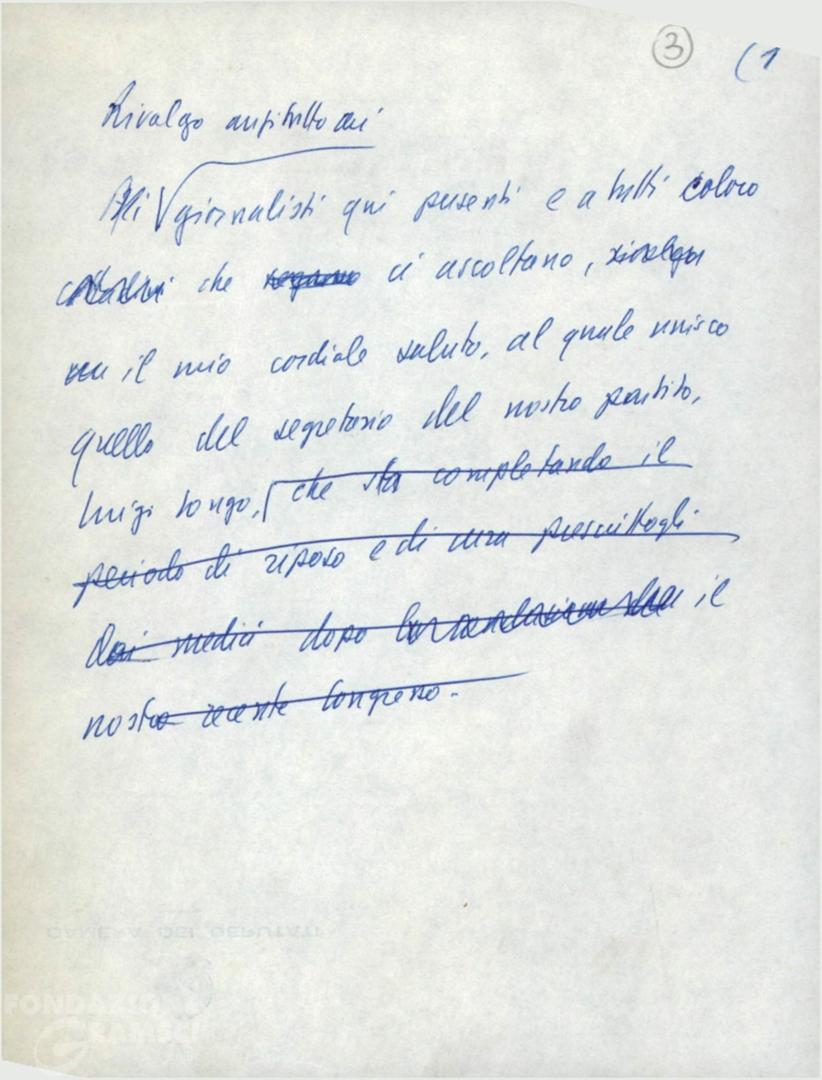 3 (1
Rivolgo anzitutto ai
Ali giornalisti qui presenti e a tutti coloro
che ci ascoltano, rivolgo
il mio cordiale saluto, al quale unisco
quello del segretario del nostro partito,
Luigi Longo, che sta completando il
periodo di riposo e di cura prescrittogli
dai medici dopo il
nostro recente Congresso.
CAMERA DEI DEPUTATI
FONDAZIONE
GRAMSCI